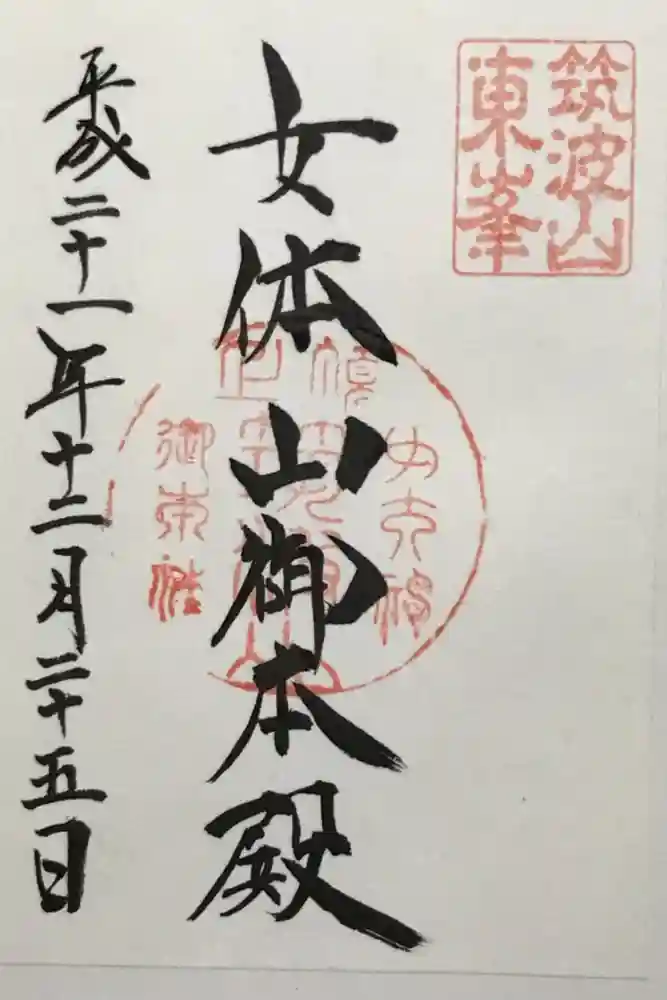 筑波山
東峯
女体山御本殿
平成二十一年十二月二十五日